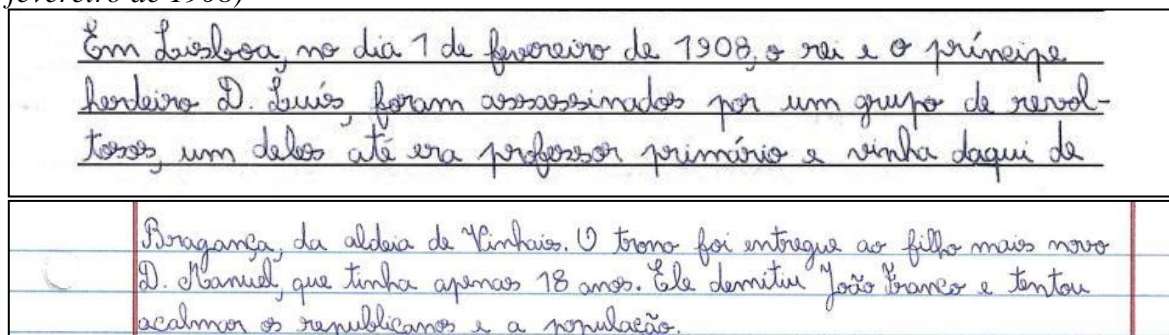 fevereiro de 1908)
Em Lisboa, no dia 1 de fevereiro de 1908, o rei e o príncipe
herdeiro D. Luís, foram assassinados por um grupo de revol-
tosos, um deles até era professor primário e vinha daqui de
Bragança, da aldeia de Vinhais. O trono foi entregue ao filho mais novo
D. Manuel, que tinha apenas 18 anos. Ele demitiu João Franco e tentou
acalmar os republicanos e a população.